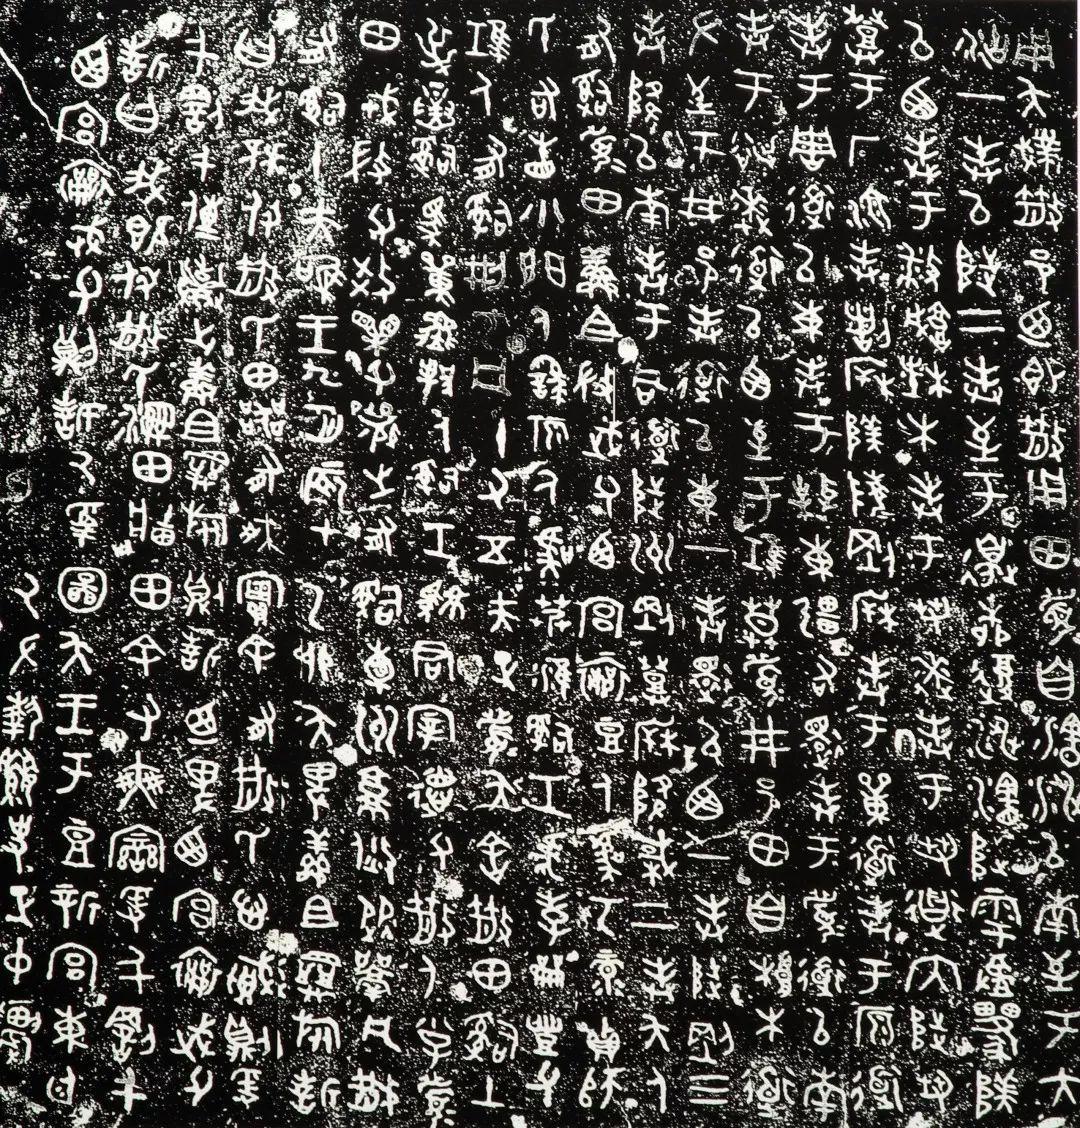 用夨散邑迺即散用田眉自瀗涉以南至于大
沽一奉以陟二奉至于邊柳復涉瀗陟雩陕
以西奉于敝城楮木奉于芻逨奉于芻道内陟芻
登于厂湶奉諸陕陵剛奉于單道奉于原道
奉于周道以東奉于東疆右還奉于眉道以南
奉于逨道以西至于堆莫眉井邑田自桹木道
左至于井邑奉道以東一奉還以西一奉陟剛三
奉降以南奉于同道陟州剛登降棫二奉夨人
有𤔲眉田鮮且微武父西宮襄豆人虞丂彔貞師
氏右眚小門人䌛原人虞莽淮𤔲工虎孝開豐父
堆人有𤔲刑丂凡十又五夫正眉夨舍散田𤔲土
屰𤔲馬單人𤔲工駷君宰德父散人小子
眉田戎微父效父襄之有𤔲橐州就焂從凡散
有𤔲十夫唯王九月辰才乙卯夨卑鮮且旅誓
曰我既付散氏田器有爽實余有散氏心賊則爰
千罰千傳棄之鮮且旅則誓迺卑西宮襄武父
誓曰我既付散氏濕田牆田余有爽變爰千罰千
西宮襄武父則誓厥受圖夨王于豆新宮東廷
厥左執史正中農